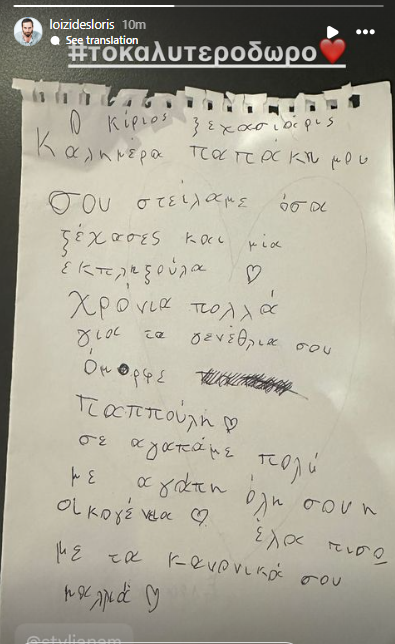 loizidesloris 10m
See translation
#τοκαλυτεροδωρο❤️
Ο κίριος ξεχασιάρις
Καλημέρα παπράκη μου
Σου στείλαμε όσα
ξέχασες και μία
εκπληξούλα ♡
Χρόνια πολλά
για τα γενέθλια σου
Όμορφε
Παππούλη ♡
σε αγαπάμε πολύ
με αγάπη όλη σου η
οικογένεια ♡
έλα πισο
με τα κανονικά σου
μαλλιά ♡
@stylianam